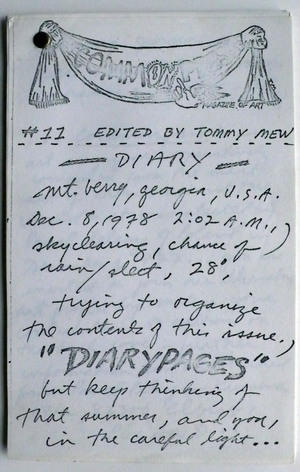 COMMONPRESS
MAGAZINE OF ART
#11 EDITED BY TOMMY MEW
— DIARY —
mt. berry, georgia, U.S.A.
Dec. 8, 1978 2:02 A.M.,
sky clearing, chance of
rain/sleet, 28°,
trying to organize
the contents of this issue.,
"DIARYPAGES"
but keep thinking of
that summer, and you,
in the careful light...